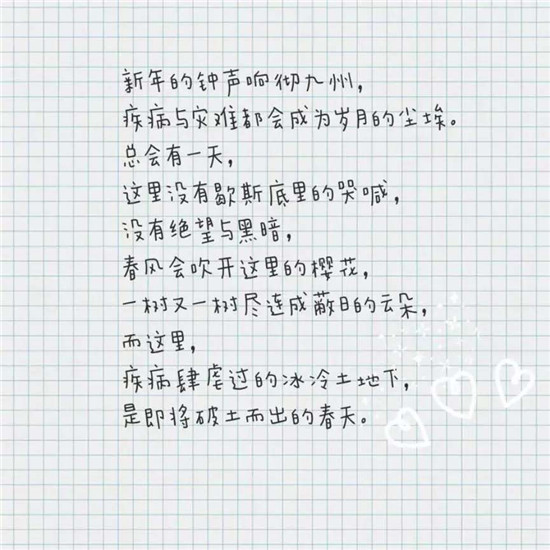 新年的钟声响彻九州，
疾病与灾难都会成为岁月的尘埃。
总会有一天，
这里没有歇斯底里的哭喊，
没有绝望与黑暗，
春风会吹开这里的樱花，
一树又一树尽连成蔽日的云朵，
而这里，
疾病肆虐过的冰冷土地下，
是即将破土而出的春天。